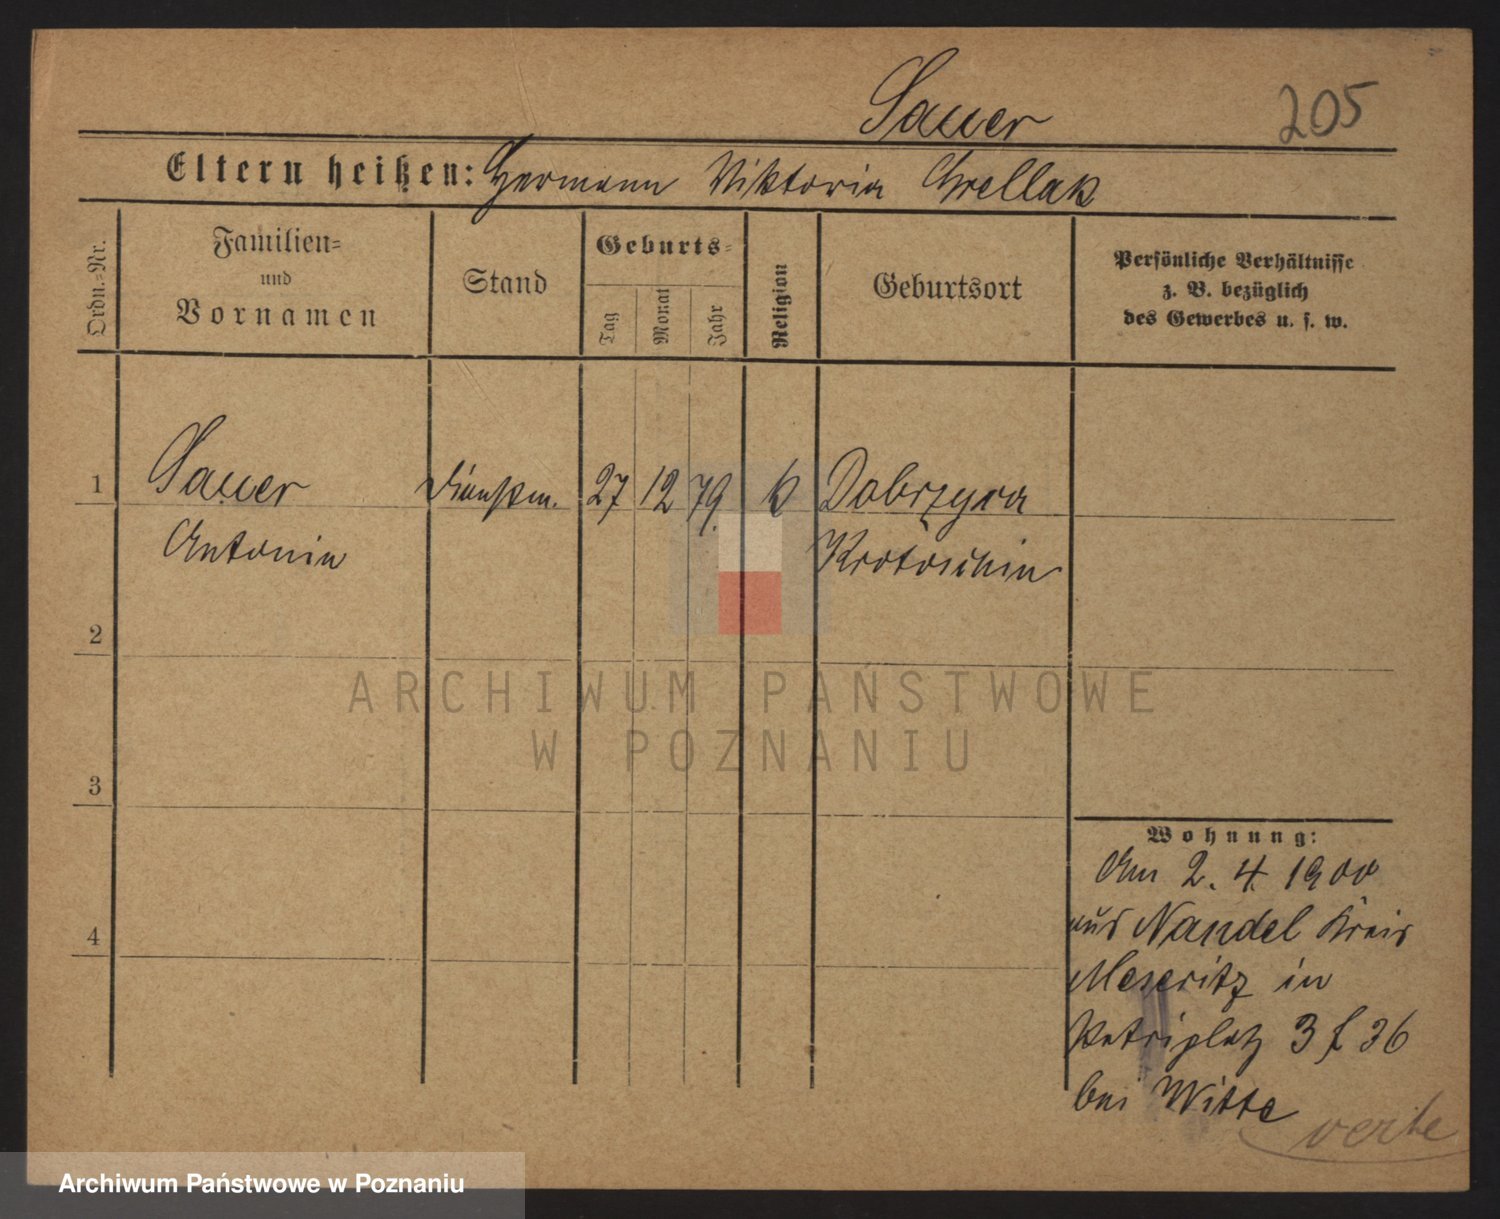 Sauer
205
Eltern heißen: Hermann Viktoria Grellak
Ordn.=Nr.
Familien=
und
Vornamen
Stand
Geburts=
Tag
Monat
Jahr
Religion
Geburtsort
Persönliche Verhältnisse
z. B. bezüglich
des Gewerbes u. s. w.
1 Sauer Dienstm. 27 12 79 k Dobrzyca
Antonin Krotoschin
2
ARCHIWUM PAŃSTWOWE
W POZNANIU
3
Wohnung:
Am 2. 4. 1900
aus Nandel Kreis
4
Meseritz in
Petriplatz 3 f 36
bei Witte
verte
Archiwum Państwowe w Poznaniu